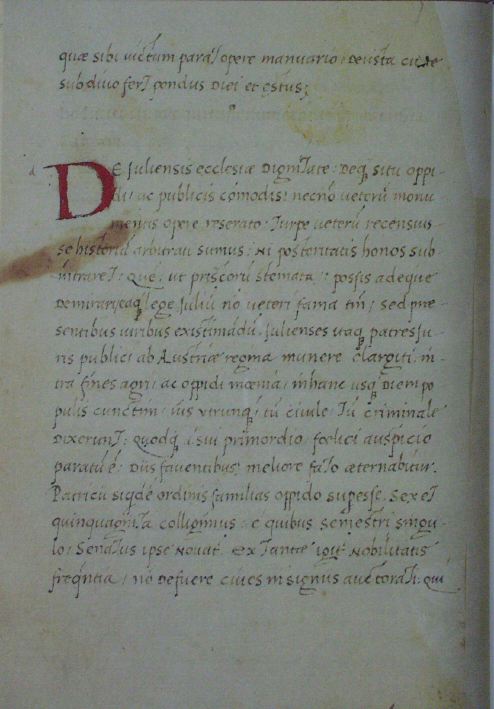 quæ sibi victum parat opere manuario: Deusta cute
subdiuo fert pondus Diei et estus;
DE Juliensis ecclesiæ Dignitate: Deq situ oppi-
di: ac publicis cómodis: necnó ueterū monu
mentis opere reserato: Turpe ueterū recensuis-
se historiā arbitrati sumus: Ni posteritatis honos sub-
intraret: Quę, ut priscorū stemata: possis adeque
Demirari: eaq lege Juliū nó ueteri fama tm̄: sed præ
sentibus uiribus existimādū. Julienses itaq patres Ju-
ris publici ab Austriæ regina munere elargiti: in-
tra fines agri: ac oppidi mœnia: inhanc usq Diem po
pulis cunctim: ius utrunq: tū ciuile: Tū criminale
Dixerunt: Quodq i sui primordio fœlici auspicio
paratū ē: Diis fauentibus: meliore fato æternabitur.
Patricii siqdē ordinis familias oppido supesse. Sex et
quinquaginta colligimus: e quibus semestri singu-
lo: Senatus ipse Nouat. Extante igit Nobilitatis
freqntia: nó Defuere ciues insignis auctorati: Qui